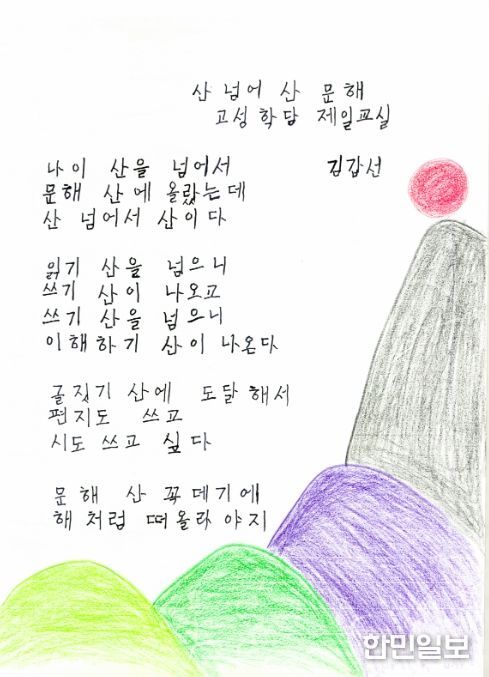 산 넘어 산 문해
고성학당 제일교실
김갑선
나이 산을 넘어서
문해 산에 올랐는데
산 넘어서 산이다
읽기 산을 넘으니
쓰기 산이 나오고
쓰기 산을 넘으니
이해하기 산이 나온다
글짓기 산에 도달해서
편지도 쓰고
시도 쓰고 싶다
문해 산 꼭데기에
해처럼 떠올라야지
한민일보